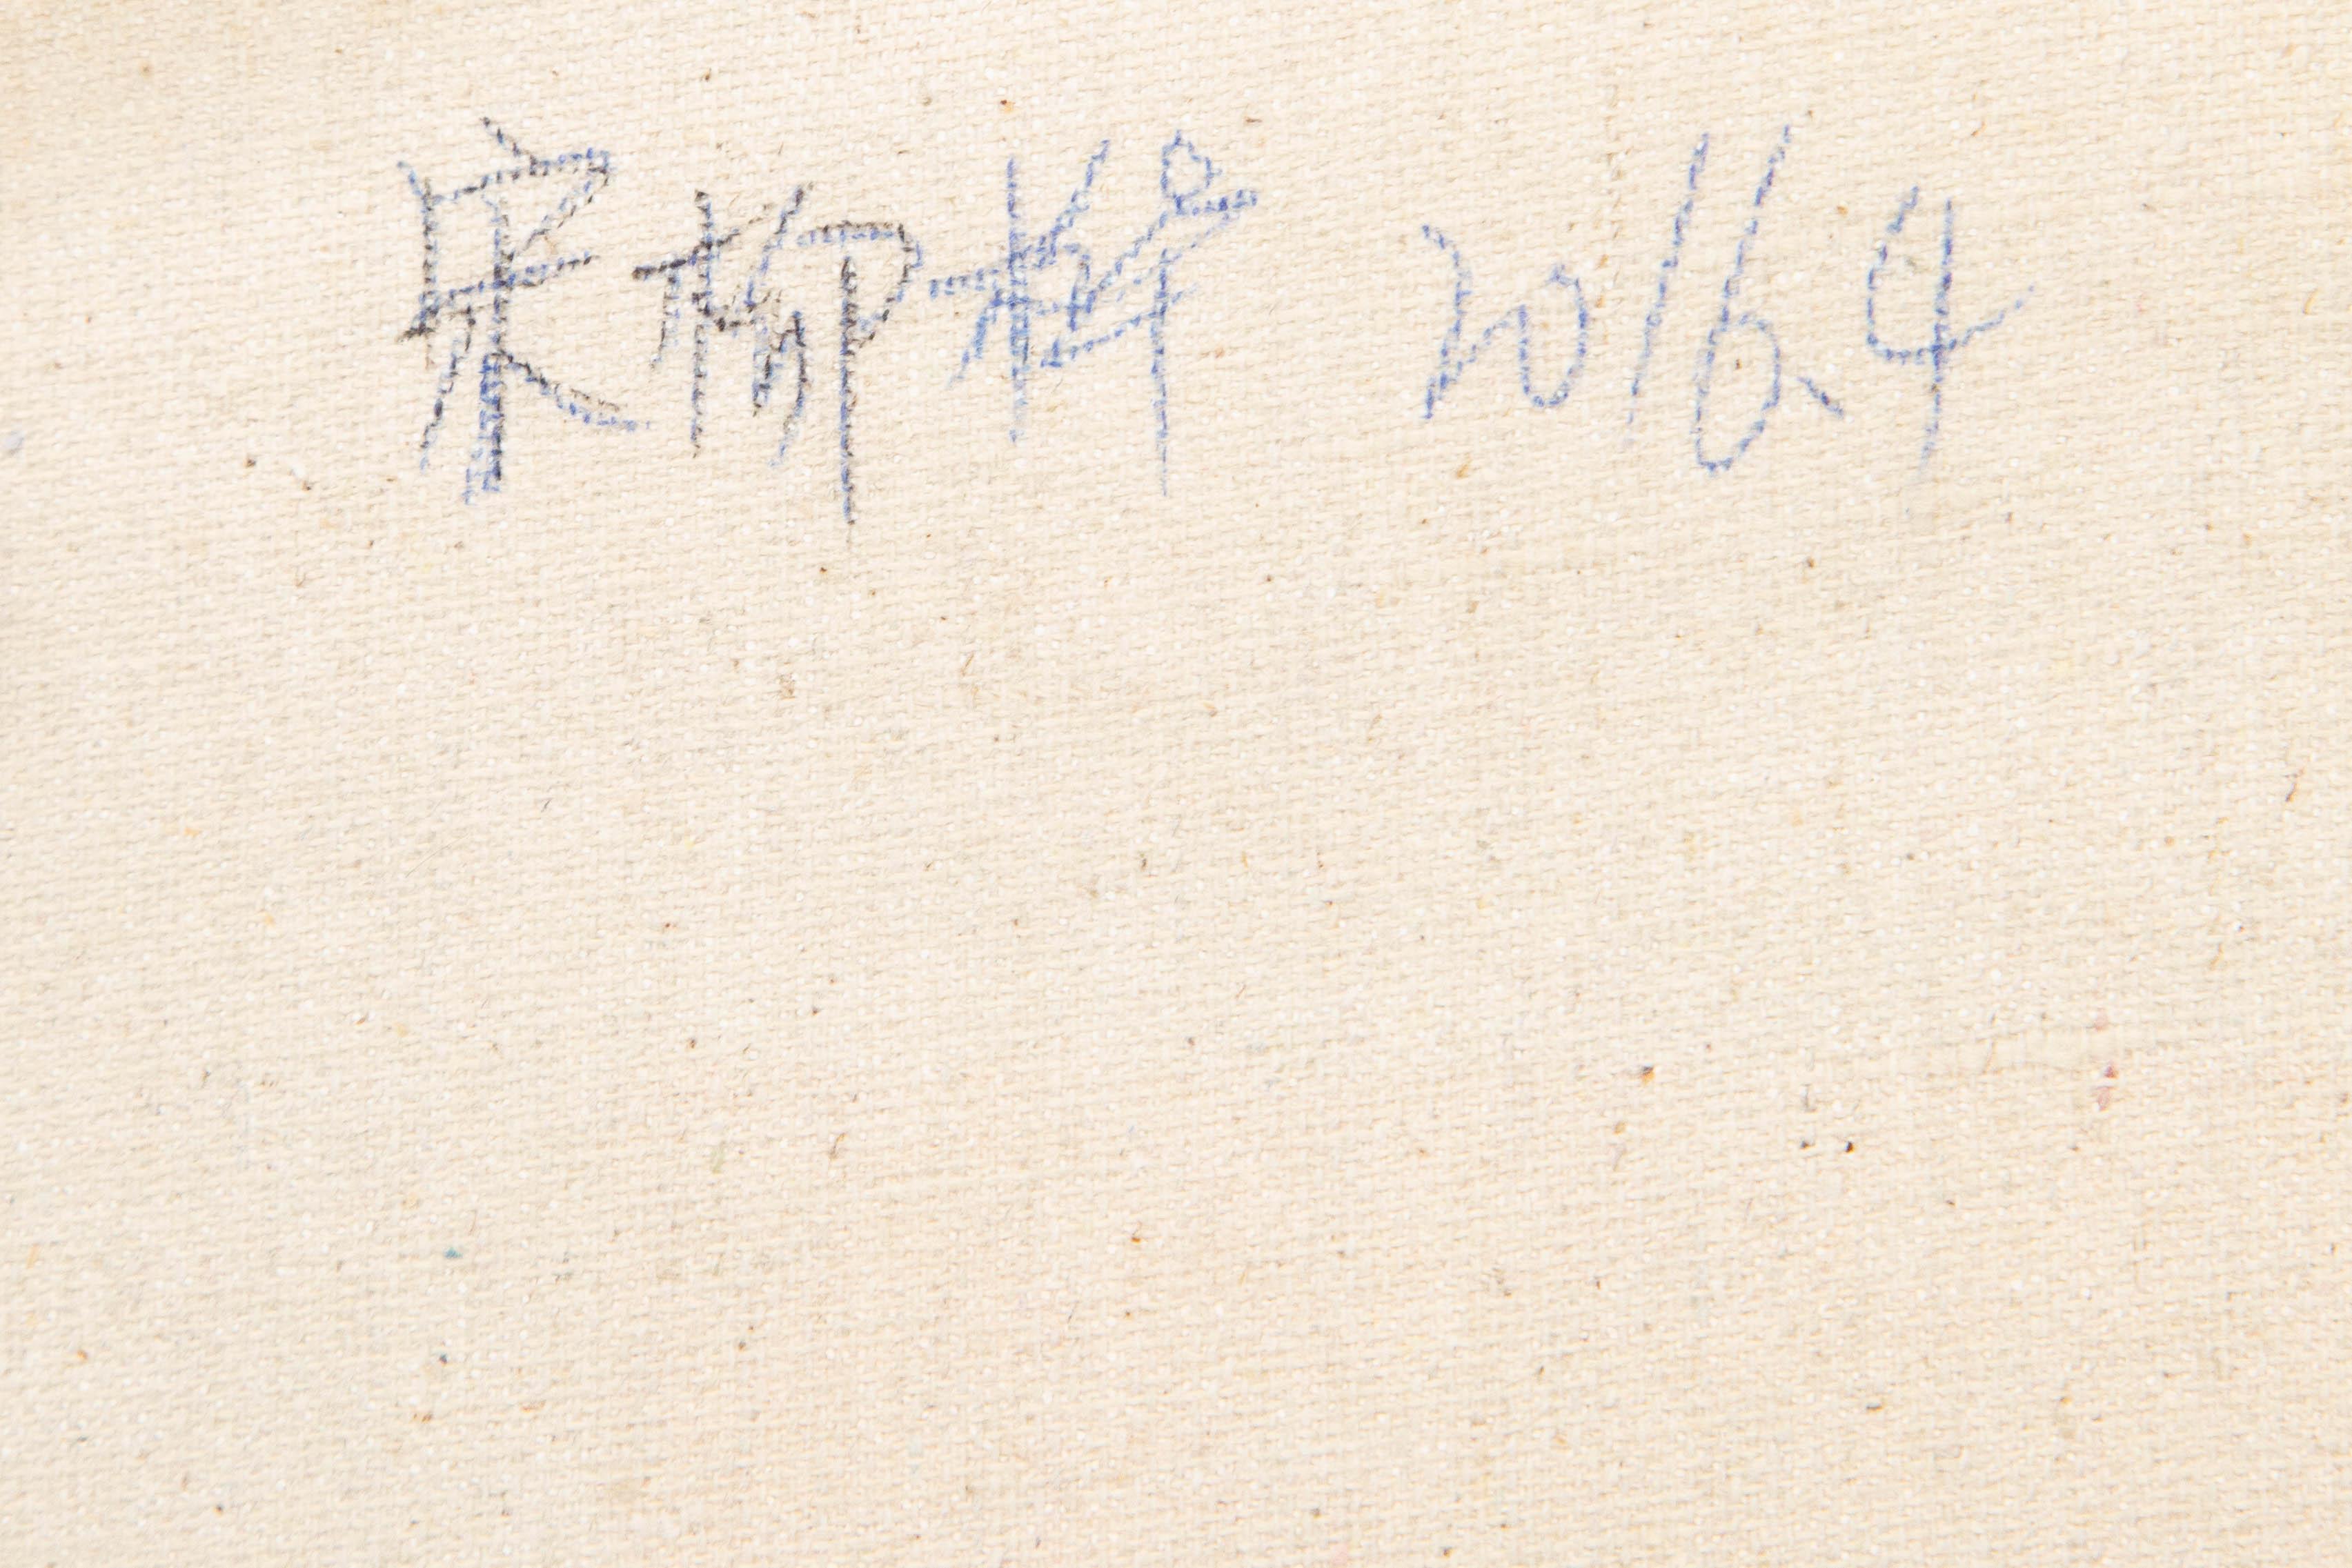 宋柳樺 2016.4